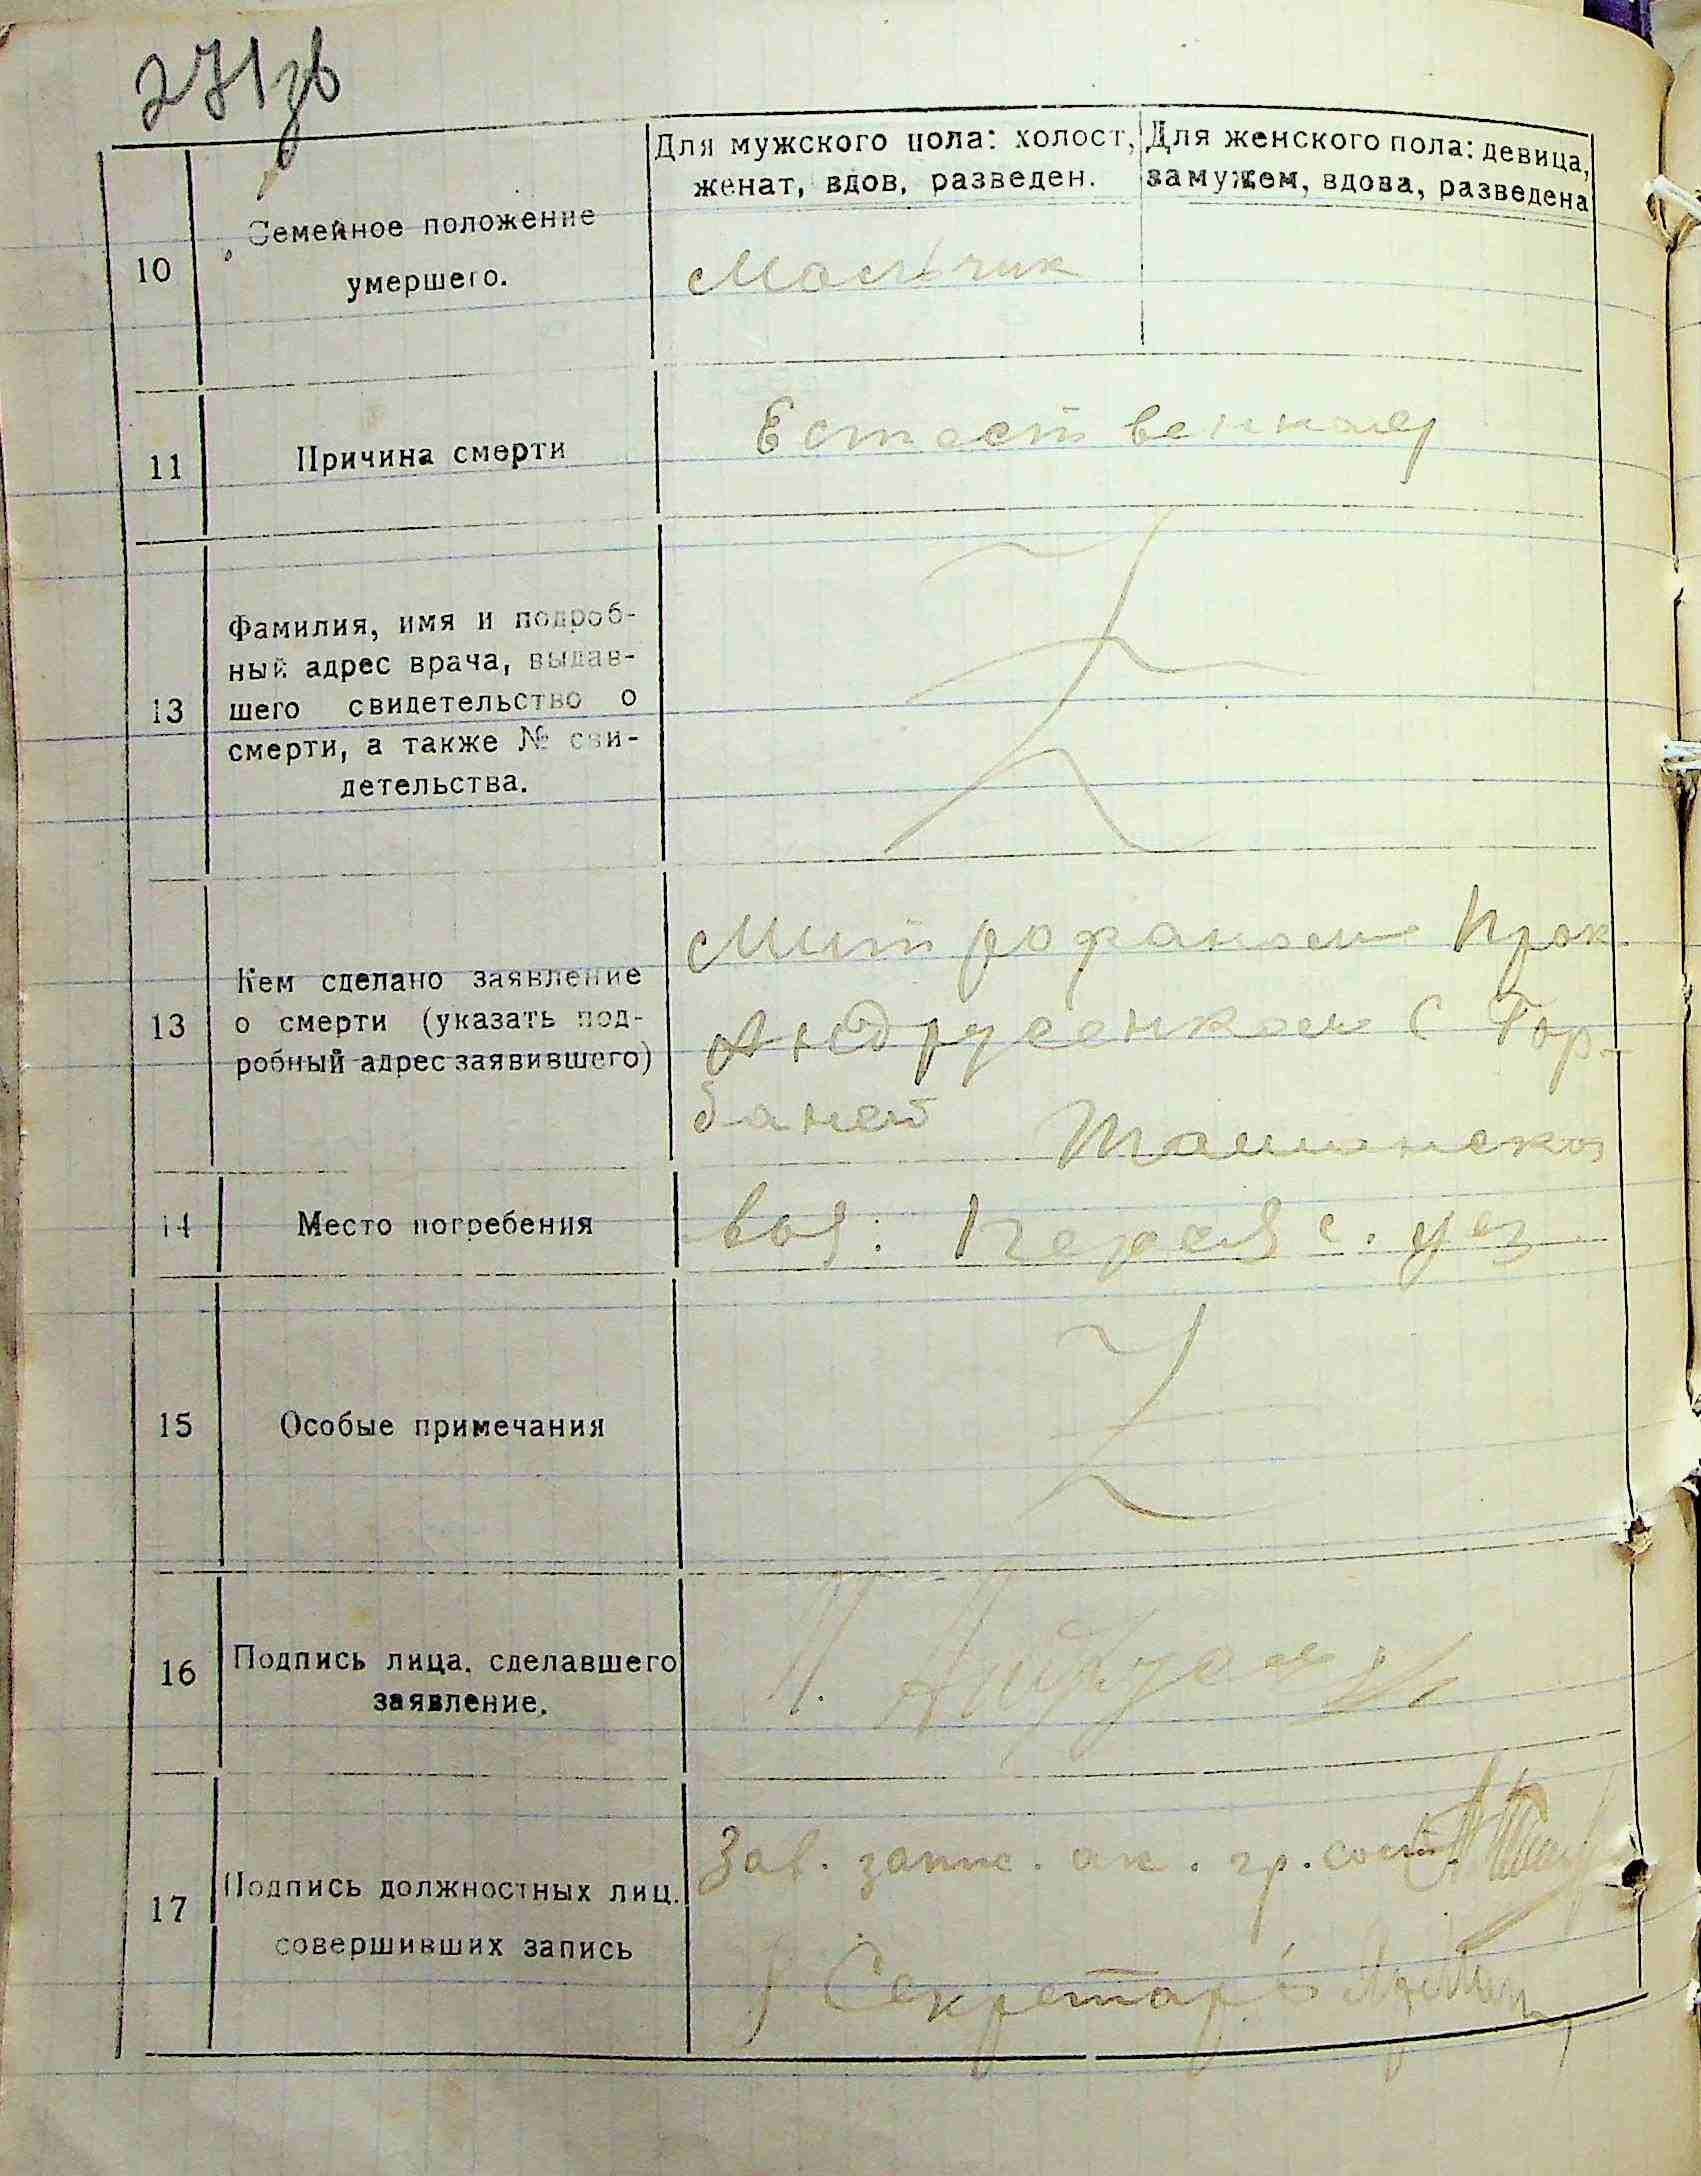 271 зв
Для мужского пола: холост, женат, вдов, разведен.
Для женского пола: девица, замужем, вдова, разведена
10
Семейное положение
умершего.
Мальчик
11
Причина смерти
Естественная
13
Фамилия, имя и подроб-
ный адрес врача, выдав-
шего свидетельство о
смерти, а также № сви-
детельства.
13
Кем сделано заявление
о смерти (указать под-
робный адрес заявившего)
Митрофаном Прок
Андрусенком с Гор-
баней Ташанской
14
Место погребения
вол: Переясл. уез
15
Особые примечания
16
Подпись лица, сделавшего
заявление.
М. Андрусенко
17
Подпись должностных лиц.
совершивших запись
Зав. запис. ак. гр. сост.
Секретарь